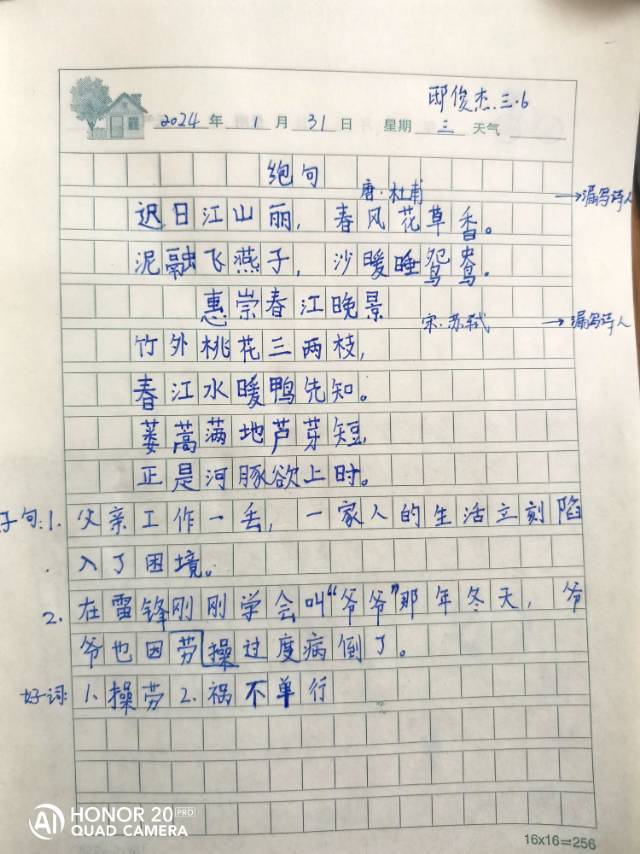 邸俊杰.三.6
2024年1月31日 星期三 天气
绝句
唐·杜甫 →漏写诗人
迟日江山丽，春风花草香。
泥融飞燕子，沙暖睡鸳鸯.
惠崇春江晚景
宋·苏轼 →漏写诗人
竹外桃花三两枝，
春江水暖鸭先知。
蒌蒿满地芦芽短，
正是河豚欲上时。
子句:1. 父亲工作一丢，一家人的生活立刻陷
入了困境。
2. 在雷锋刚刚学会叫“爷爷”那年冬天，爷
爷也因劳操过度病倒了。
好词: 1.操劳 2.祸不单行
HONOR 20 PRO
AI QUAD CAMERA
16x16=256